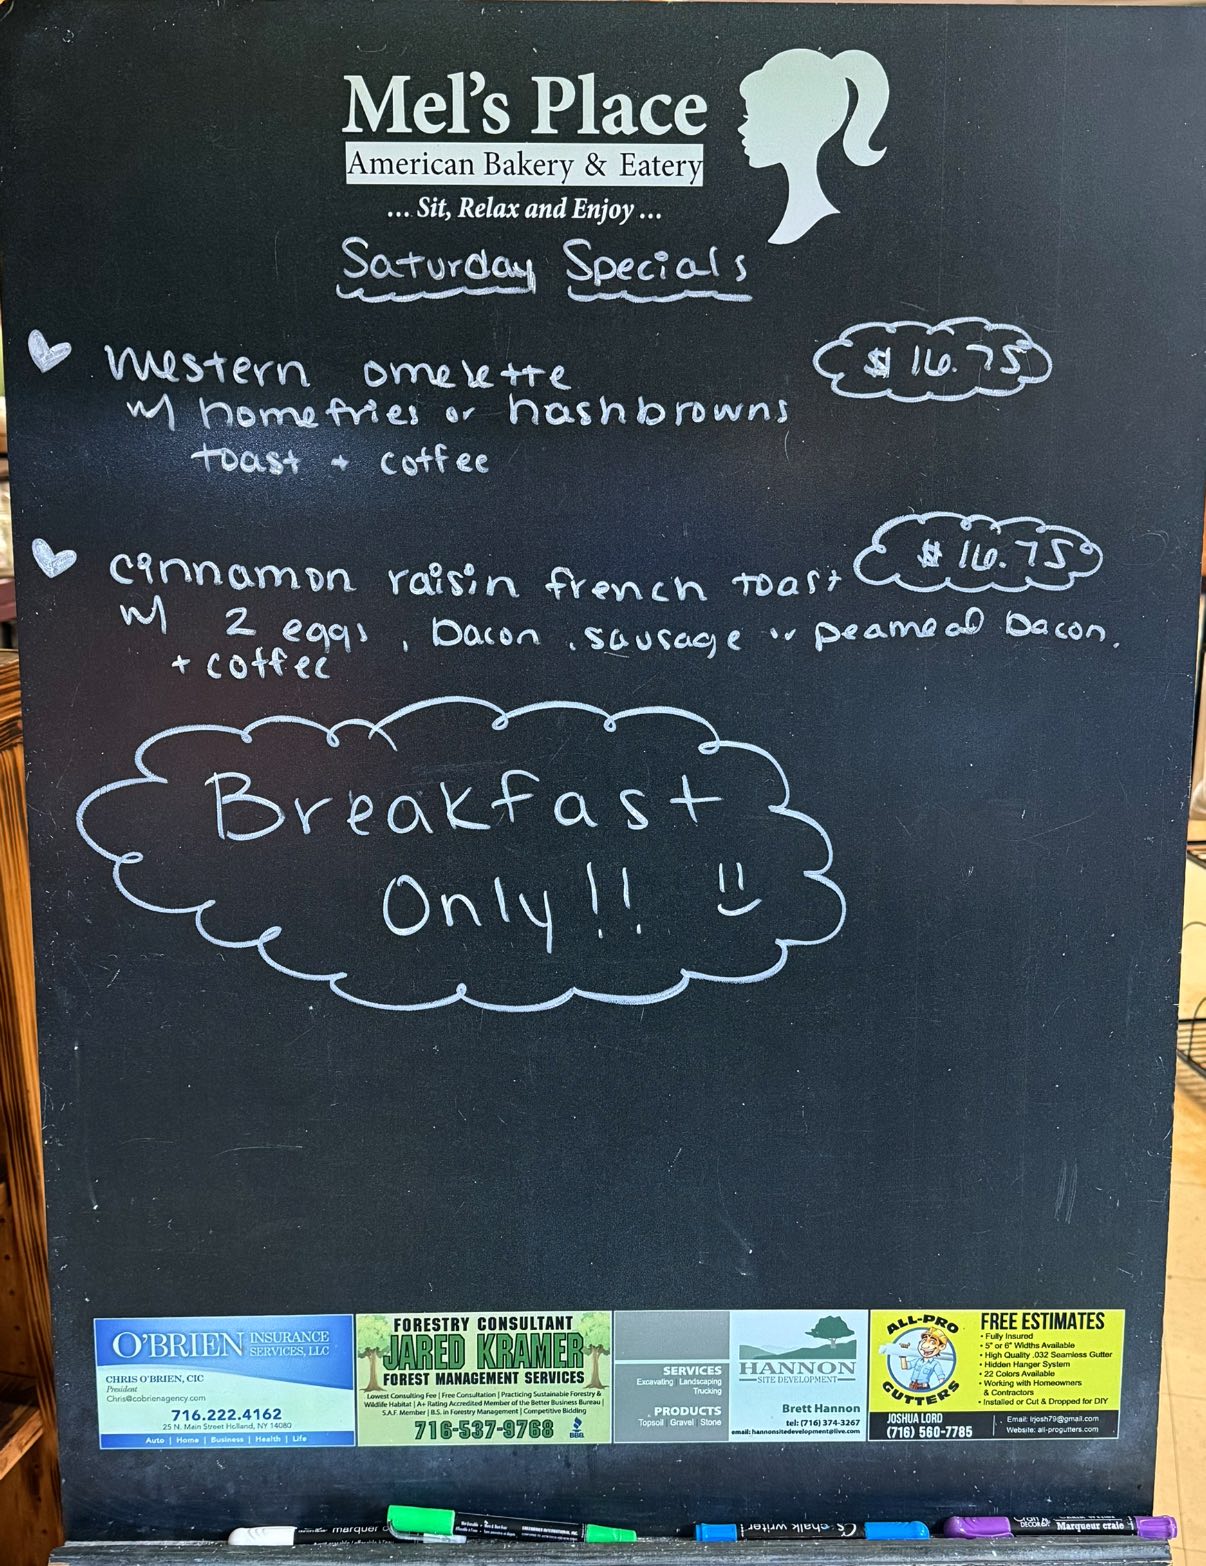 Mel's Place
American Bakery & Eatery
... Sit, Relax and Enjoy ...
Saturday Specials
Western omelette
$16.75
w/ homefries or hashbrowns
toast + coffee
cinnamon raisin french toast
$16.75
w/ 2 eggs, bacon, sausage or peameal bacon.
+ coffee
Breakfast
Only!!
O'BRIEN INSURANCE SERVICES, LLC
CHRIS O'BRIEN, CIC
President
Chris@cobrienagency.com
716.222.4162
25 N. Main Street Holland, NY 14080
Auto | Home | Business | Health | Life
FORESTRY CONSULTANT
JARED KRAMER
FOREST MANAGEMENT SERVICES
Lowest Consulting Fee | Free Consultation | Practicing Sustainable Forestry &
Wildlife Habitat | A+ Rating Accredited Member of the Better Business Bureau |
S.A.F. Member | B.S. in Forestry Management | Competitive Bidding
716-537-9768
BBB
SERVICES
Excavating Landscaping
Trucking
PRODUCTS
Topsoil Gravel Stone
HANNON
SITE DEVELOPMENT
Brett Hannon
tel: (716) 374-3267
email: hannonsitedevelopment@live.com
ALL-PRO
GUTTERS
JOSHUA LORD
(716) 560-7785
FREE ESTIMATES
• Fully Insured
• 5" or 6" Widths Available
• High Quality .032 Seamless Gutter
• Hidden Hanger System
• 22 Colors Available
• Working with Homeowners
& Contractors
• Installed or Cut & Dropped for DIY
Email: lrjosh79@gmail.com
Website: all-progutters.com
marquer
chalk writer
Marqueur craie